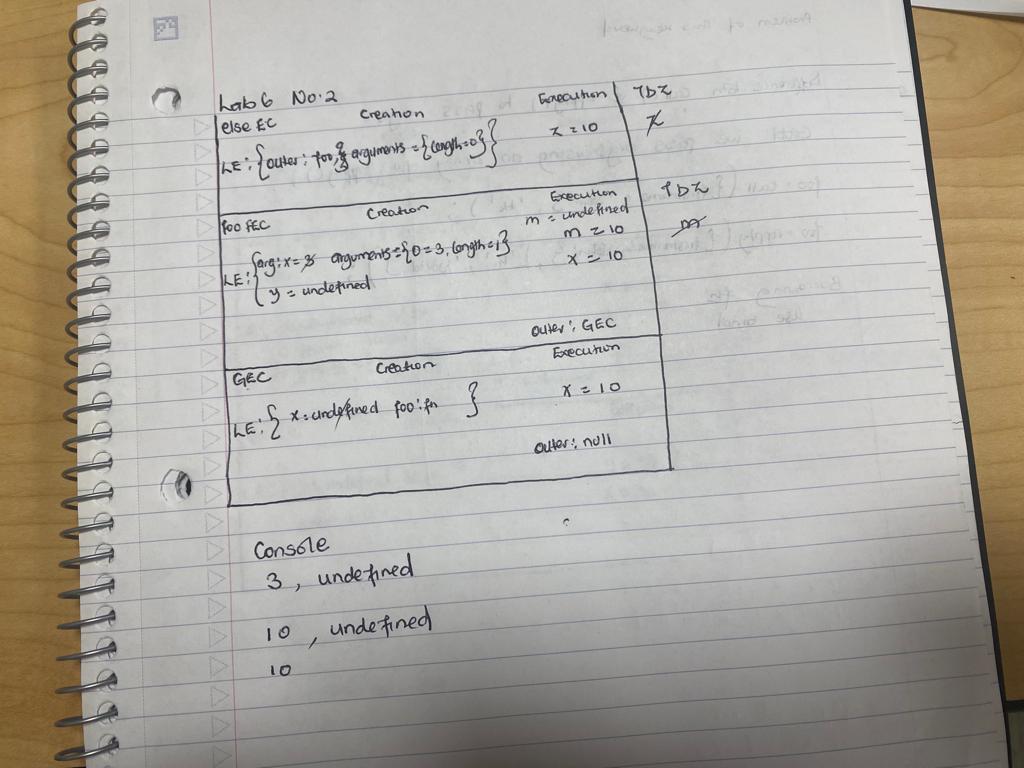 Lab 6 No.2
else EC Creation Execution TDZ
LE: {outer: foo, arguments = {length=0}} z = 10 z
foo FEC Creation Execution TDZ
m = undefined
m = 10 m
LE: {arg: x = 3 arguments = {0 = 3, length = 1} x = 10
y = undefined
outer: GEC
GEC Creation Execution
LE: { x = undefined foo: fn } x = 10
outer: null
Console
3, undefined
10, undefined
10